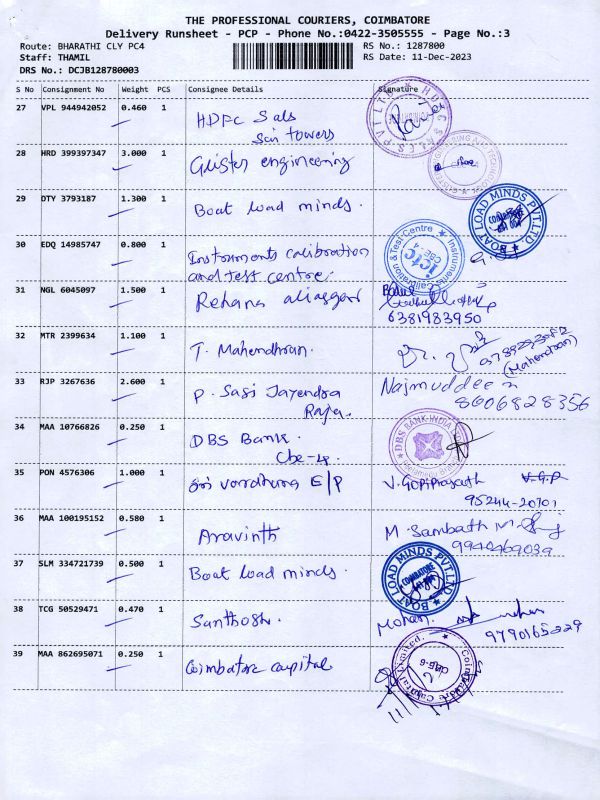 THE PROFESSIONAL COURIERS, COIMBATORE
Delivery Runsheet - PCP - Phone No.:0422-3505555 - Page No.:3
Route: BHARATHI CLY PC4 RS No.: 1287800
Staff: THAMIL RS Date: 11-Dec-2023
DRS No.: DCJB128780003
S No Consignment No Weight PCS Consignee Details Signature
27 VPL 944942052 0.460 1 HDFC Sals
Sai towers
28 HRD 399397347 3.000 1 Glister engineering
29 DTY 3793187 1.300 1 Boat load minds.
BOAT LOAD MINDS PVT.LTD
COIMBATORE
30 EDQ 14985747 0.800 1 Instruments calibration
and test centre.
Instruments Calibration & Test Centre
ictc
CBE-4
31 NGL 6045097 1.500 1 Rehana aliasger
6381983950
32 MTR 2399634 1.100 1 T. Mahendhran.
(Mahendran)
33 RJP 3267636 2.600 1 P. Sasi Jayendra
Raja.
Najmuddeen
8606828356
34 MAA 10766826 0.250 1 DBS Bank.
Cbe-4.
DBS BANK INDIA
35 PON 4576306 1.000 1 Sri vardhana E/P V. Gopiprasath V.G.P
95244-20701
36 MAA 100195152 0.580 1 Aravinth M. Sambath
9940469039
37 SLM 334721739 0.500 1 Boat load minds.
BOAT LOAD MINDS PVT.LTD
COIMBATORE
38 TCG 50529471 0.470 1 Santhosh. Mohan
9790165229
39 MAA 862695071 0.250 1 Coimbatore capital
Coimbatore Capital Limited.
CBE-6